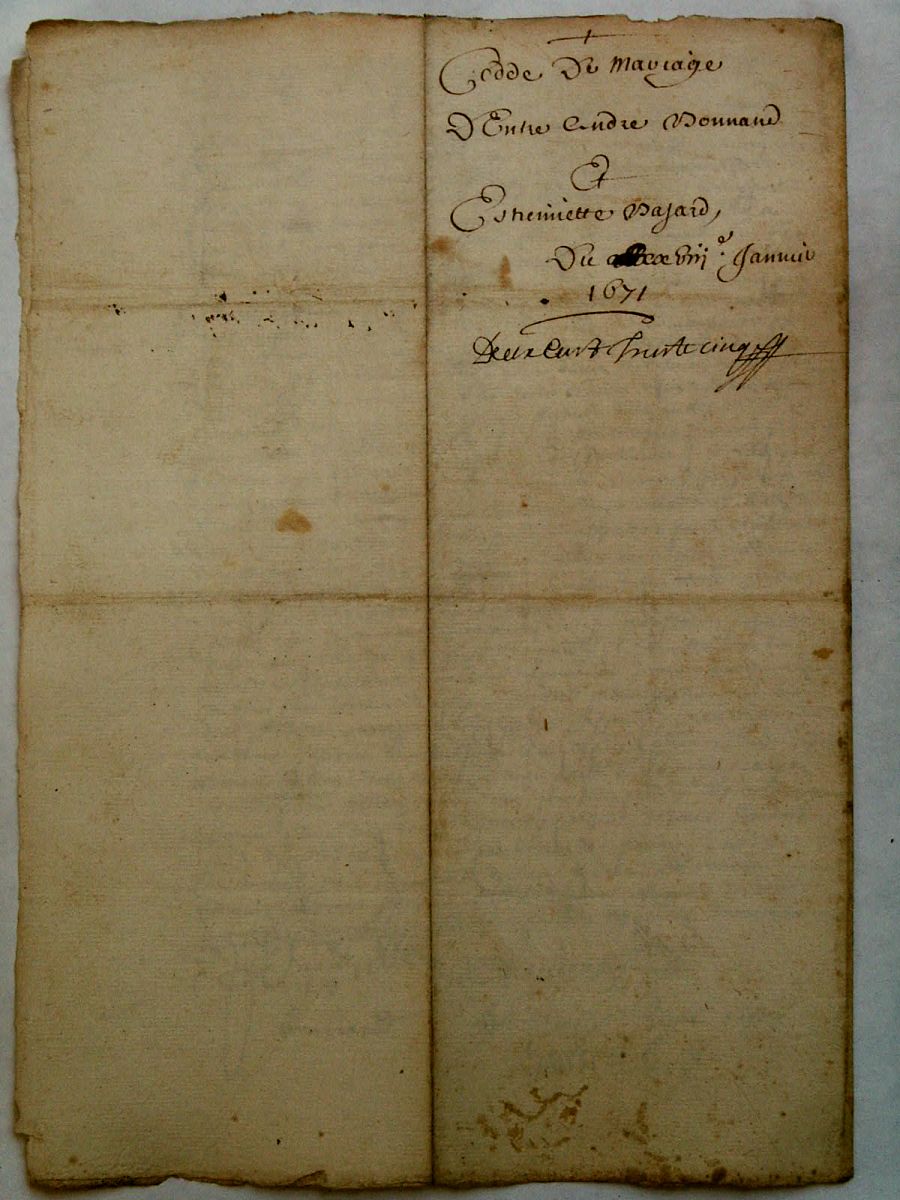 Cedde De Mariage
D'Entre Andre Bonnand
Et
Estiennette Basard,
Du xviij.e Janvier
1671
Deux Cent Trente cinq